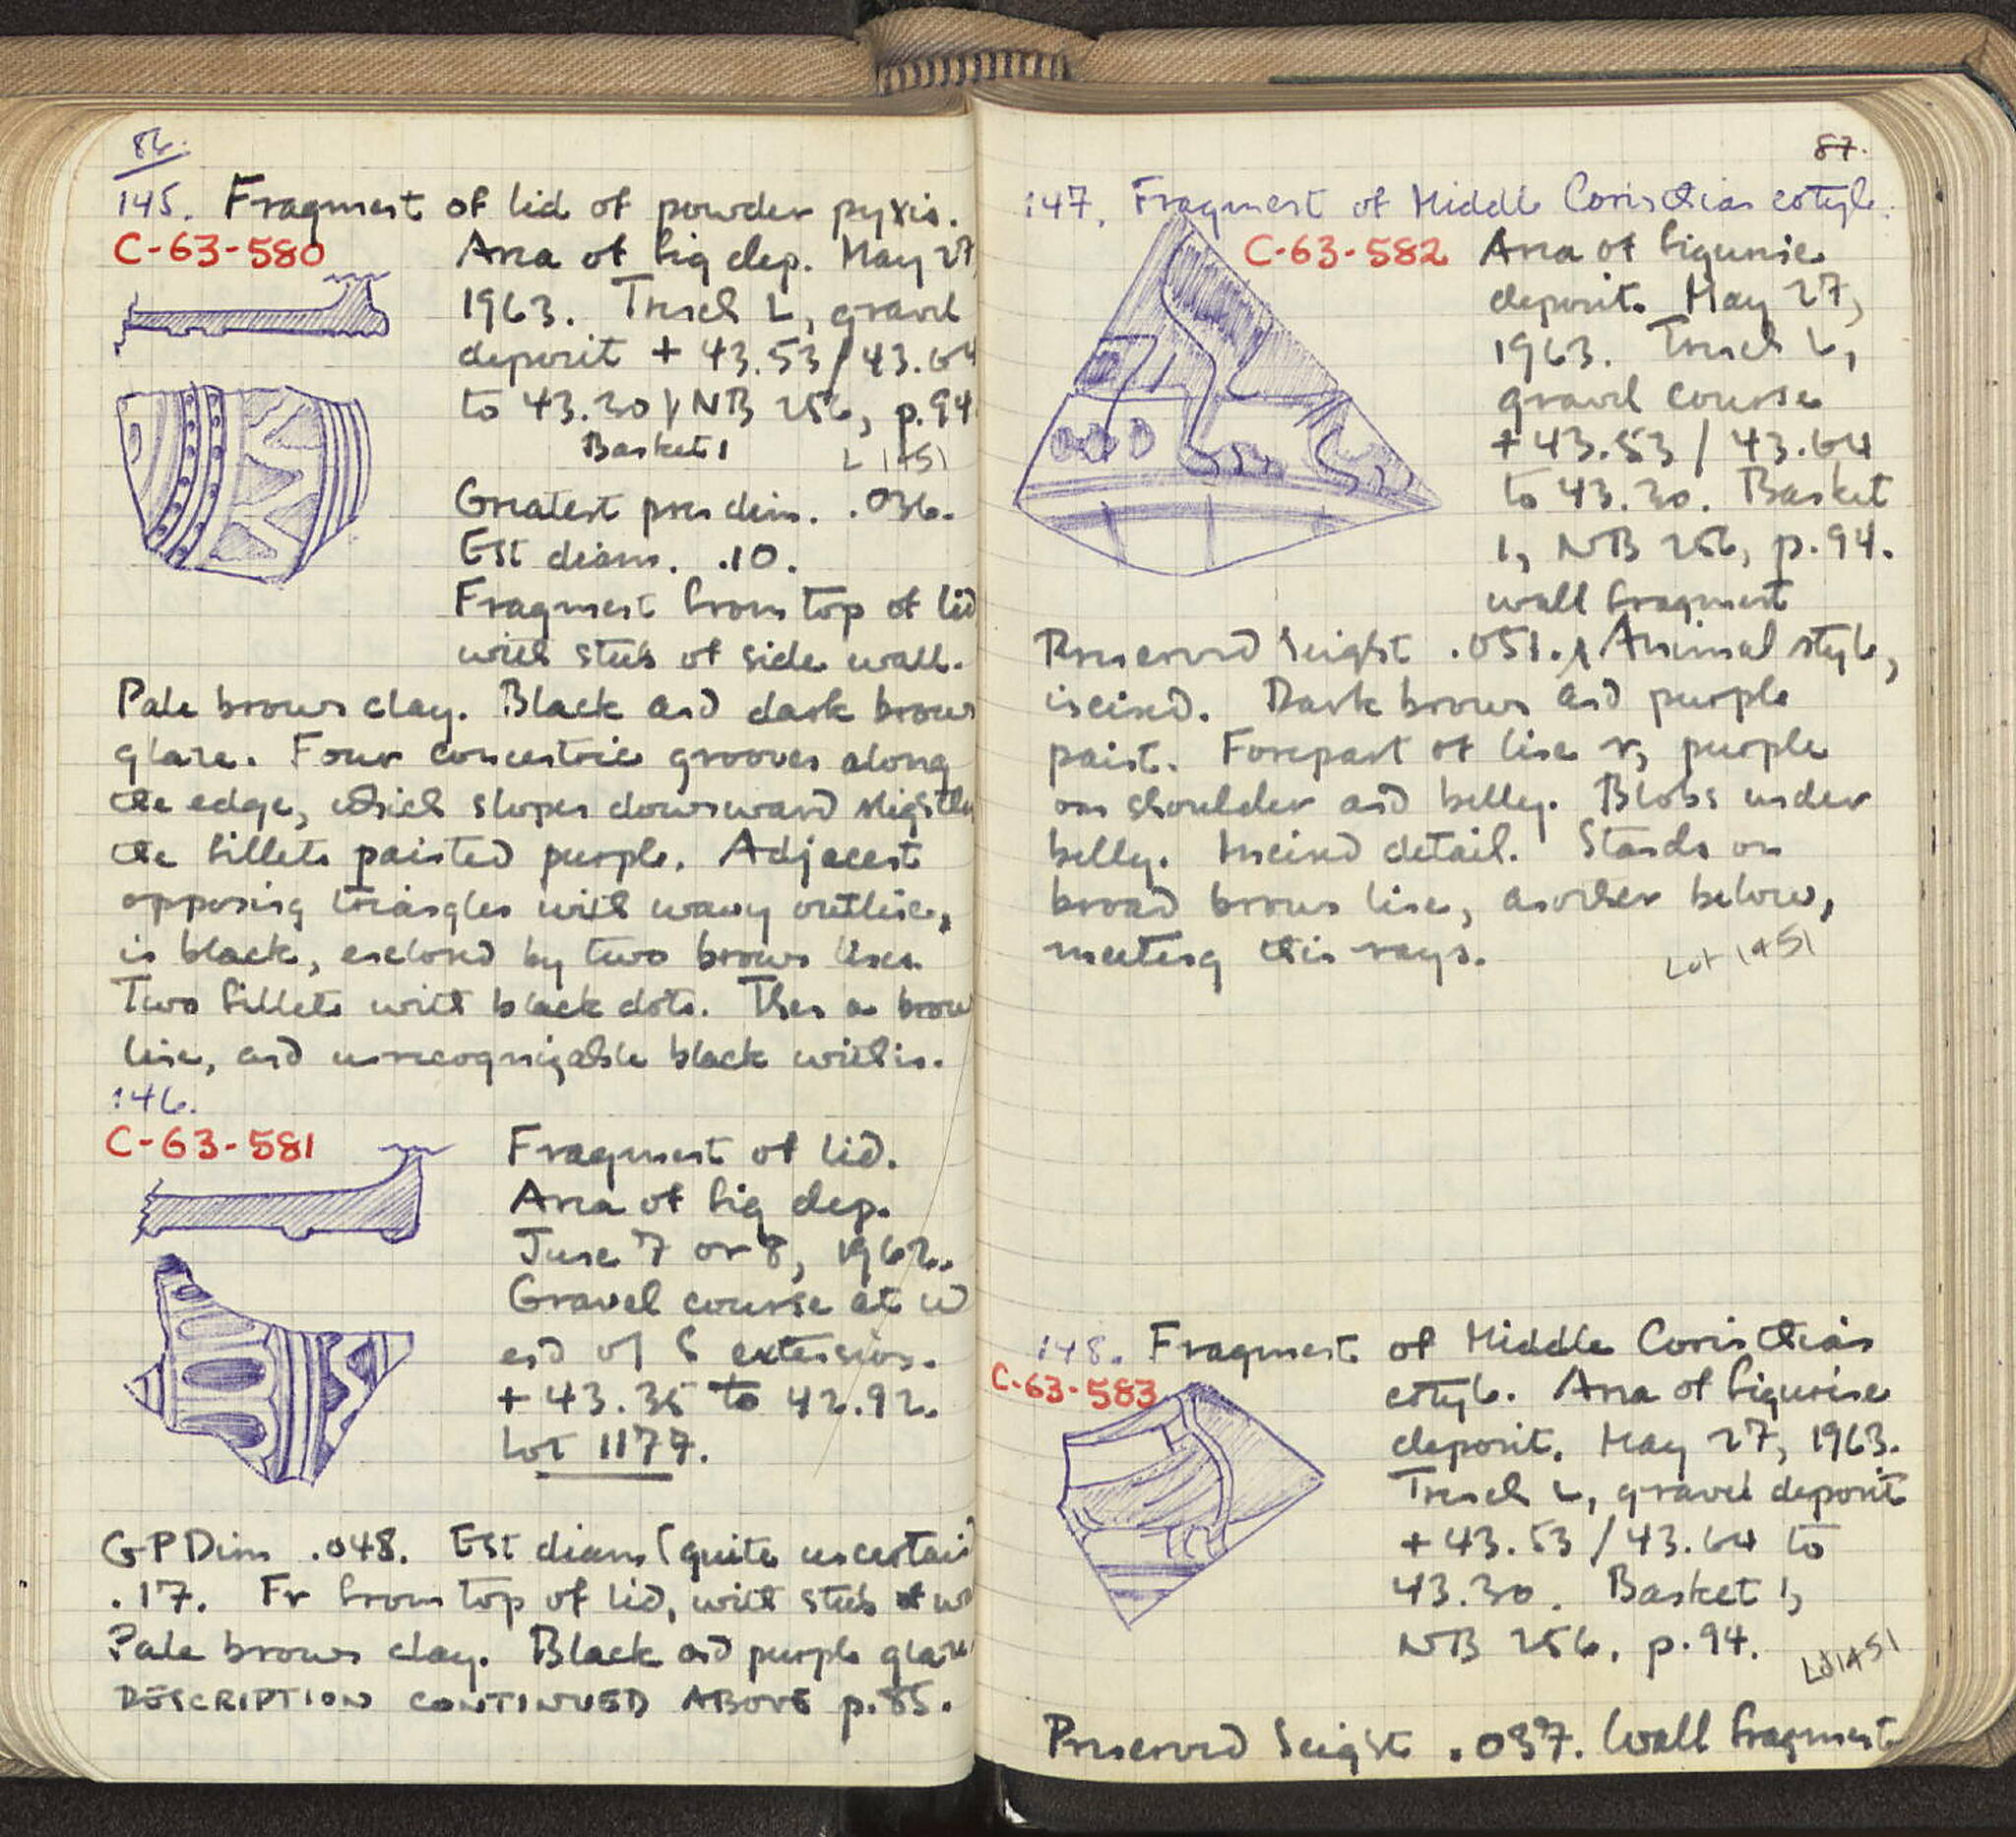 86.
145. Fragment of lid of powder pyxis.
C-63-580
Area of fig dep. May 27
1963. Trench L, gravel
deposit + 43.53/43.64
to 43.30 / NB 256, p.94
Basket 1
L 1451
Greatest pres dim. .036.
Est diam. .10.
Fragment from top of lid
with stub of side wall.
Pale brown clay. Black and dark brown
glaze. Four concentric grooves along
the edge, which slopes downward slightly
the fillets painted purple. Adjacent
opposing triangles with wavy outline,
in black, enclosed by two brown lines.
Two fillets with black dots. Then a brow
line, and unrecognizable black within.
146.
C-63-581
Fragment of lid.
Area of fig dep.
June 7 or 8, 1962.
Gravel course at W
end of S extension.
+ 43.35 to 42.92.
Lot 1179.
GPDim .048. Est diam (quite uncertain
.17. Fr from top of lid, with stub of wa
Pale brown clay. Black and purple glaze
DESCRIPTION CONTINUED ABOVE p.85.
87.
147. Fragment of Middle Corinthian cotyle.
C-63-582
Area of figurine
deposit. May 27,
1963. Trench L,
gravel course
+43.53 / 43.64
to 43.30. Basket
1, NB 256, p.94.
wall fragment
Preserved height .051. Animal style,
incised. Dark brown and purple
paint. Forepart of lion r, purple
on shoulder and belly. Blobs under
belly. Incised detail. Stands on
broad brown line, another below,
meeting thin rays.
Lot 1451
148. Fragment of Middle Corinthian
C-63-583
cotyle. Area of figurine
deposit. May 27, 1963.
Trench L, gravel deposit
+43.53/43.64 to
43.30. Basket 1,
NB 256, p.94.
Lot 1451
Preserved height .037. Wall fragment